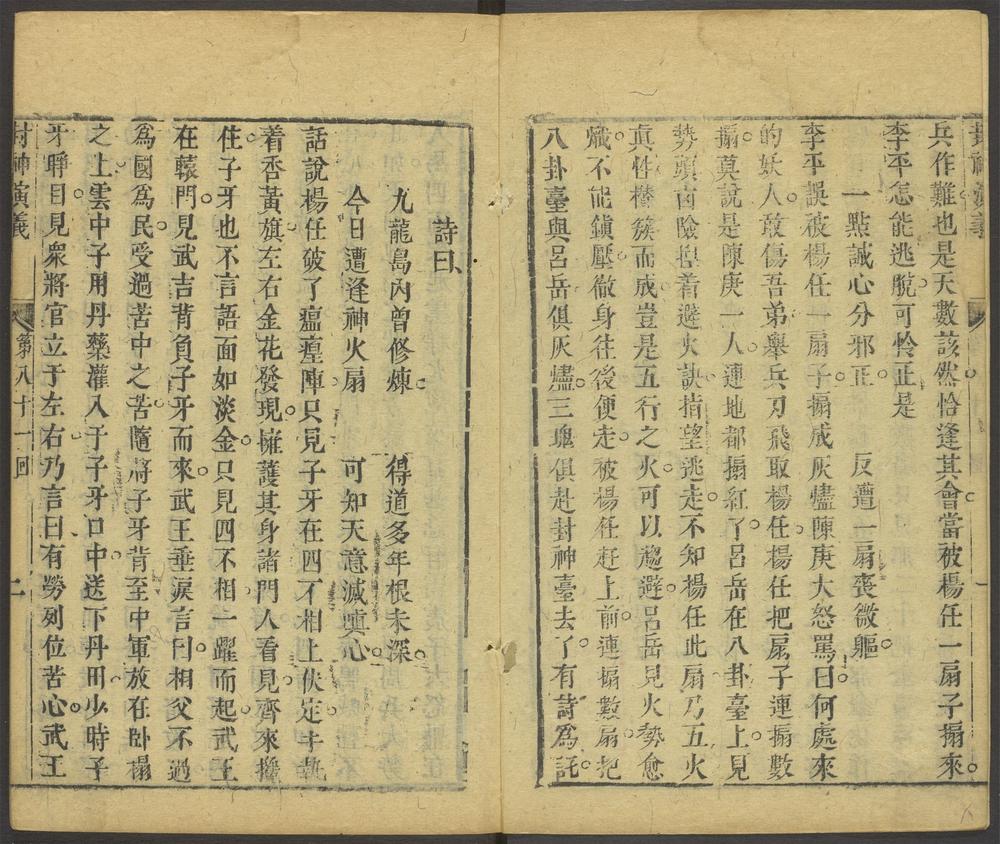 封神演義
兵作難也是天數該然恰逢其會當被楊任一扇子搧來
李平怎能逃脫可憐正是
一點誠心分邪正 反遭一扇喪微軀
李平誤被楊任一扇子搧成灰燼陳庚大怒罵曰何處來
的妖人敢傷吾弟舉兵刃飛取楊任楊任把扇子連搧數
搧莫說是陳庚一人連地都搧紅了呂岳在八卦臺上見
勢頭兇險捏着避火訣指望逃走不知楊任此扇乃五火
真性攢簇而成豈是五行之火可以趨避呂岳見火勢愈
熾不能鎮壓徹身往後便走被楊任赶上前連搧數扇把
八卦臺與呂岳俱灰燼三魂俱赴封神臺去了有詩為証
詩曰
九龍島內曾修煉 得道多年根未深
今日遭逢神火扇 可知天意滅嗔心
話說楊任破了瘟㾮陣只見子牙在四不相上伏定手執
着杏黃旗左右金花發現擁護其身諸門人看見齊來攙
住子牙也不言語面如淡金只見四不相一躍而起武王
在轅門見武吉背負子牙而來武王垂淚言曰相父不過
為國為民受過苦中之苦隨將子牙背至中軍放在卧榻
之上雲中子用丹藥灌入于子牙口中送下丹田少時子
牙睜目見衆將官立于左右乃言曰有勞列位苦心武王
封神演義 第八十一回 二